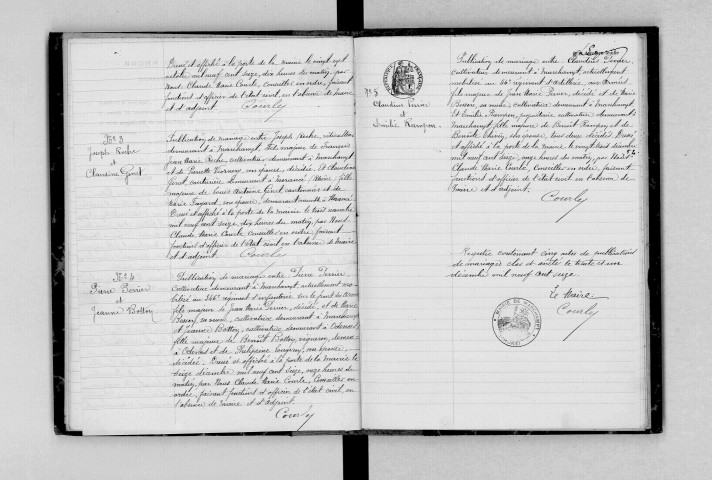 Dressé et affiché à la porte de la mairie le vingt sept
octobre mil neuf cent seize, dix heures du matin, par
Nous Claude Marie Courly, conseiller en ordre, faisant
fonctions d'officier de l'état civil, en l'absence de Maire
et d'adjoint. Courly
N° 3
Joseph Roche
et
Claudine Giret
Publication de mariage entre Joseph Roche,
demeurant à Marchampt, fils majeur de François
Jean Marie Roche, cultivateur demeurant à Marchampt
et de Pierrette, son épouse, décédée. Et Claudine
Giret, couturière demeurant à
majeure de Louis Antoine Giret, cantonnier et de
Marie, son épouse, demeurant ensemble à
Dressé et affiché à la porte de la mairie le trois novembre
mil neuf cent seize, dix heures du matin, par Nous
Claude Marie Courly conseiller en ordre, faisant
fonctions d'officier de l'état civil en l'absence de Maire
et d'adjoint. Courly
N° 4
Pierre Perrier
et
Jeanne Botton
Publication de mariage entre Pierre Perrier
cultivateur demeurant à Marchampt, actuellement mo-
bilisé au régiment d'infanterie sur le front des armées
fils majeur de Jean Marie Perrier, décédé, et de Marie
sa veuve, cultivatrice demeurant à Marchampt
et Jeanne Botton, cultivatrice demeurant à Odenas
fille majeure de Benoît Botton, vigneron, demeurant
à Odenas et de Philippine, son épouse
décédée. Dressé et affiché à la porte de la mairie le
seize décembre mil neuf cent seize, onze heures du
matin, par Nous Claude Marie Courly, Conseiller en
ordre, faisant fonctions d'officier de l'état civil, en
l'absence de Maire et d'adjoint.
Courly
N° 5
Claudius Perrier
et
Emilie Rampon
Publication de mariage entre Claudius Perrier,
cultivateur demeurant à Marchampt, actuellement
mobilisé au régiment d'artillerie, aux Armées
fils majeur de Jean Marie Perrier, décédé et de Marie
sa veuve, cultivatrice demeurant à Marchampt
Et Emilie Rampon, cultivatrice demeurant à
Marchampt, fille majeure de Benoît Rampon et de
Benoîte, son épouse, tous deux décédés. Dressé
et affiché à la porte de la mairie, le décembre
mil neuf cent seize, par Nous
Claude Marie Courly, Conseiller en ordre, faisant
fonctions d'officier de l'état civil en l'absence de
Maire et d'adjoint.
Courly
Registre contenant cinq actes de publications
de mariages clos et arrêté le trente et un
décembre mil neuf cent seize.
Le Maire
Courly
MAIRIE DE MARCHAMPT